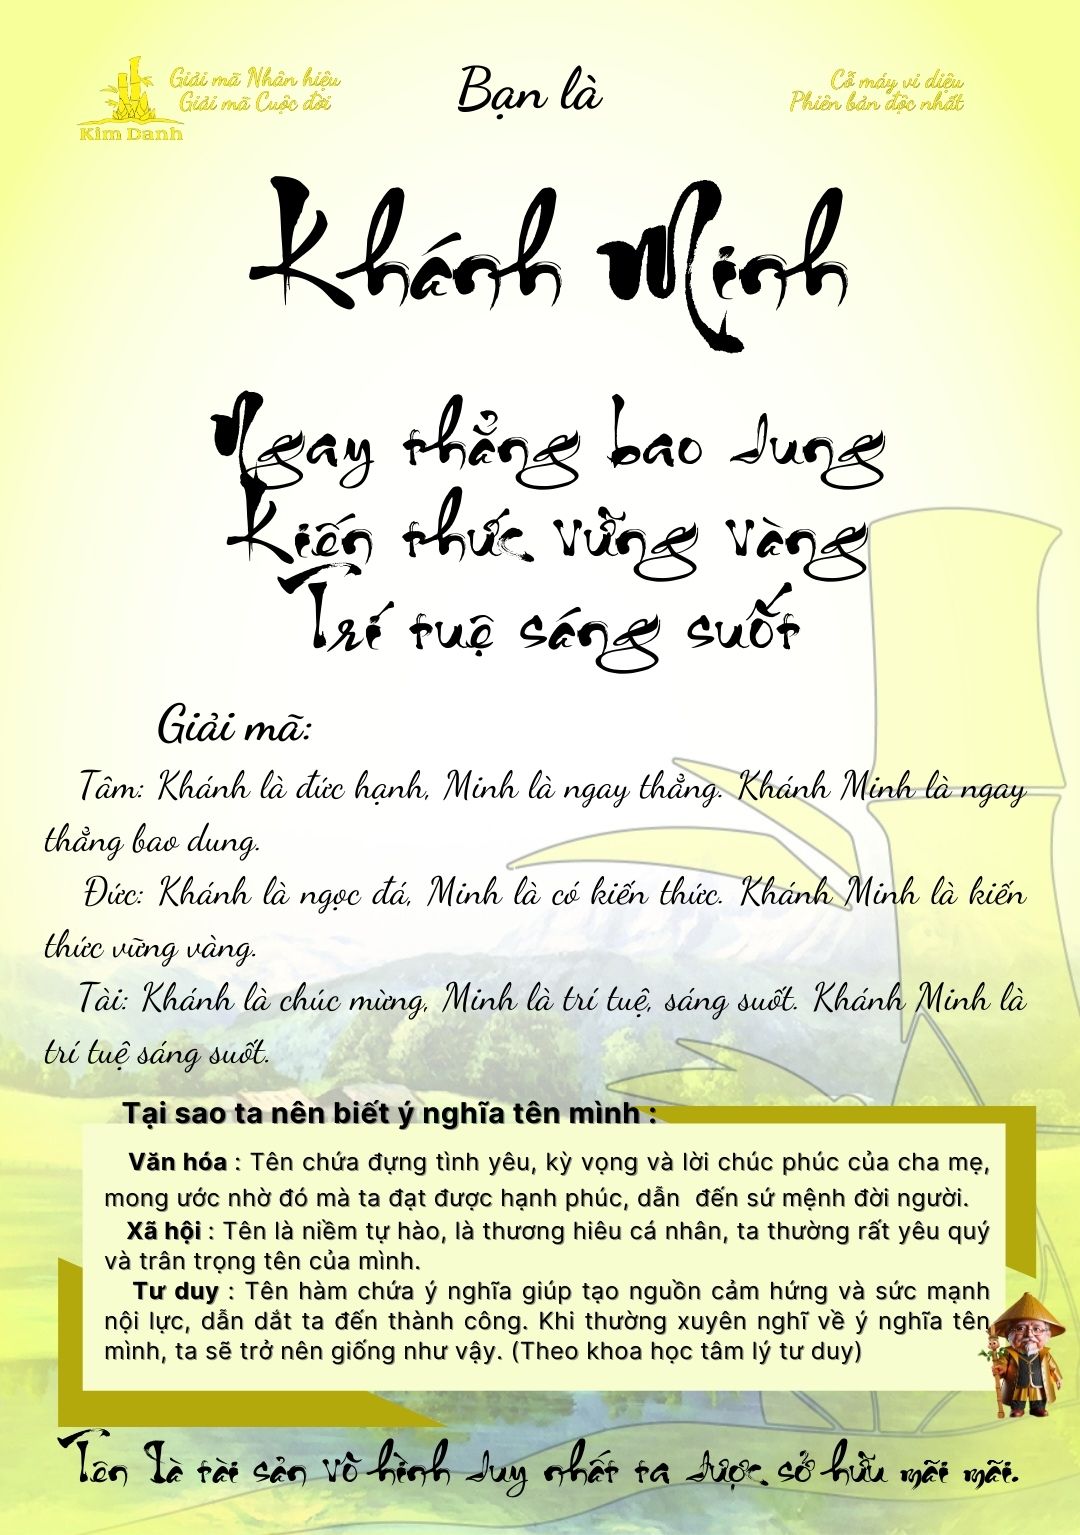 Giải mã Nhân hiệu
Giải mã Cuộc đời
Kim Danh
Bạn là
Cỗ máy vi diệu
Phiên bản độc nhất
Khánh Minh
Ngay thẳng bao dung
Kiến thức vững vàng
Trí tuệ sáng suốt
Giải mã:
Tâm: Khánh là đức hạnh, Minh là ngay thẳng. Khánh Minh là ngay
thẳng bao dung.
Đức: Khánh là ngọc đá, Minh là có kiến thức. Khánh Minh là kiến
thức vững vàng.
Tài: Khánh là chúc mừng, Minh là trí tuệ, sáng suốt. Khánh Minh là
trí tuệ sáng suốt.
Tại sao ta nên biết ý nghĩa tên mình :
Văn hóa : Tên chứa đựng tình yêu, kỳ vọng và lời chúc phúc của cha mẹ,
mong ước nhờ đó mà ta đạt được hạnh phúc, dẫn đến sứ mệnh đời người.
Xã hội : Tên là niềm tự hào, là thương hiêu cá nhân, ta thường rất yêu quý
và trân trọng tên của mình.
Tư duy : Tên hàm chứa ý nghĩa giúp tạo nguồn cảm hứng và sức mạnh
nội lực, dẫn dắt ta đến thành công. Khi thường xuyên nghĩ về ý nghĩa tên
mình, ta sẽ trở nên giống như vậy. (Theo khoa học tâm lý tư duy)
Tên Là tài sản vô hình duy nhất ta được sở hữu mãi mãi.